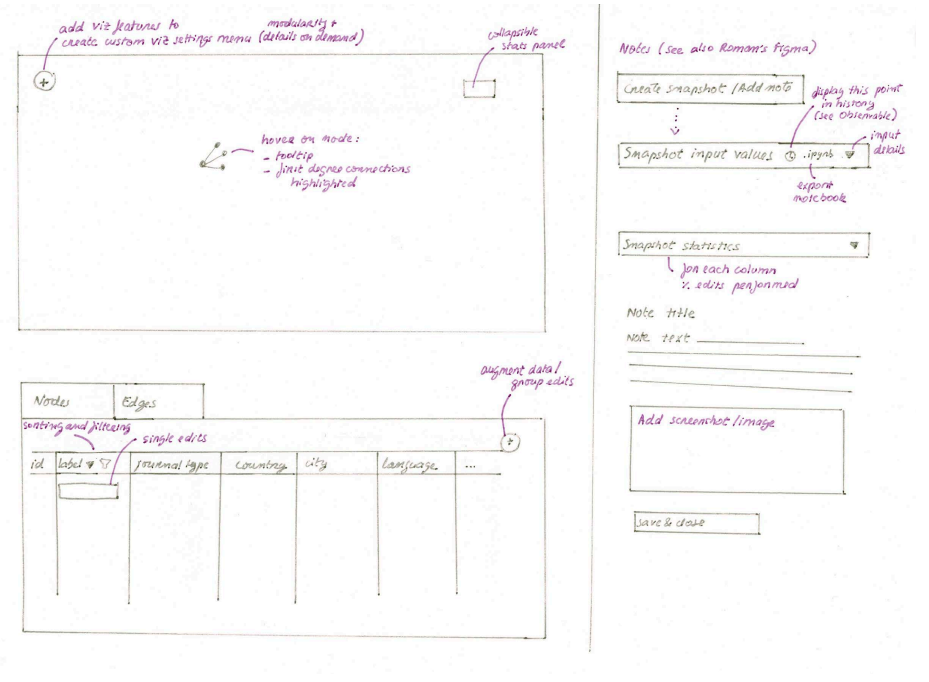 add viz features to
create custom viz settings menu
modularity +
(details on demand)
collapsible
stats panel
+
hover on node:
- tooltip
- first degree connections
highlighted
augment data/
group edits
Nodes
Edges
sorting and filtering
single edits
+
id
label
journal type
country
city
language
...
Notes (see also Roman's Figma)
Create snapshot / Add note
display this point
in history
(see Observable)
input
details
Snapshot input values
.ipynb
export
notebook
Snapshot statistics
for each column
% edits performed
Note title
Note text
Add screenshot / image
save & close